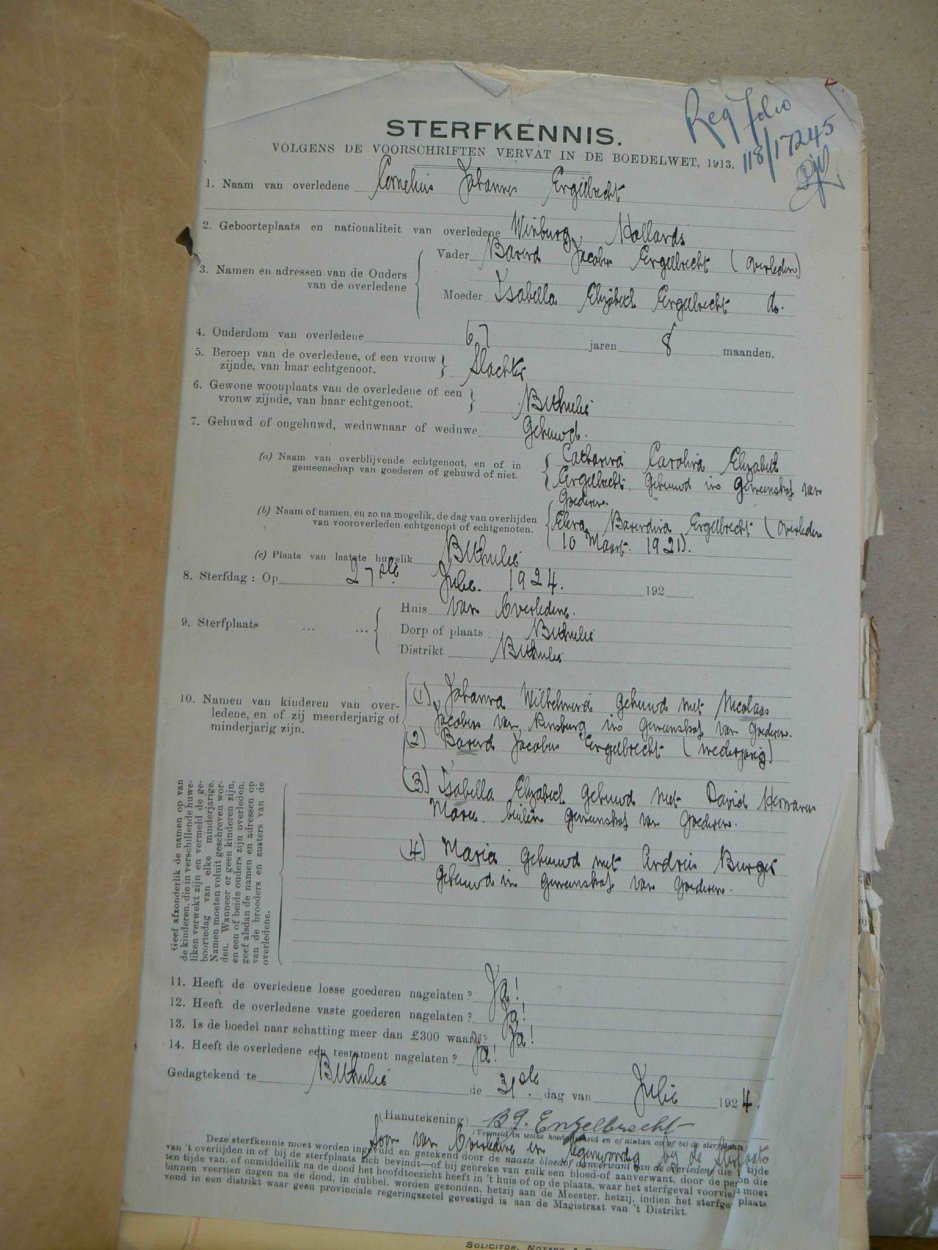 Reg folio
118/17245
STERFKENNIS.
VOLGENS DE VOORSCHRIFTEN VERVAT IN DE BOEDELWET, 1913.
1. Naam van overledene Cornelius Johannes Engelbrecht
2. Geboorteplaats en nationaliteit van overledene Winburg, Hollands
3. Namen en adressen van de Ouders van de overledene
Vader Barend Jacobus Engelbrecht (Overleden)
Moeder Isabella Elizabeth Engelbrecht do.
4. Ouderdom van overledene 67 jaren 8 maanden.
5. Beroep van de overledene, of een vrouw zijnde, van haar echtgenoot. Slachter
6. Gewone woonplaats van de overledene of een vrouw zijnde, van haar echtgenoot. Bethulie
7. Gehuwd of ongehuwd, weduwnaar of weduwe Gehuwd.
(a) Naam van overblijvende echtgenoot, en of in gemeenschap van goederen of gehuwd of niet.
Catharina Carolina Elizabeth
Engelbrecht. Gehuwd in Gemeenschap van
Goederen.
(b) Naam of namen, en zo na mogelik, de dag van overlijden van vooroverleden echtgenoot of echtgenoten.
Barendina Engelbrecht (Overleden
10 Maart 1921).
(c) Plaats van laatste huwelik Bethulie
8. Sterfdag : Op 27ste Julie. 1924. 192
9. Sterfplaats ... ...
Huis van Overledene.
Dorp of plaats Bethulie
Distrikt Bethulie
10. Namen van kinderen van overledene, en of zij meerderjarig of minderjarig zijn.
(1) Johanna Wilhelmina Gehuwd met Nicolaas
Jacobus van Rensburg in gemeenschap van Goederen.
(2) Barend Jacobus Engelbrecht (mederjarig)
(3) Isabella Elizabeth Gehuwd met David Hermanus
Maree. buiten gemeenschap van Goederen.
(4) Maria Gehuwd met Andries Burger
Gehuwd in Gemeenschap van Goederen.
Geef afzonderlik de namen op van
de kinderen, die in verschillende huwe-
liken verwekt zijn en vermeld de ge-
boortedag van elke minderjarige.
Namen moeten voluit geschreven wor-
den. Wanneer er geen kinderen zijn,
en een of beide ouders zijn overleden,
geef alsdan de namen en adressen op
van de broeders en zusters van de
overledene.
11. Heeft de overledene losse goederen nagelaten ? Ja!
12. Heeft de overledene vaste goederen nagelaten ? Ja!
13. Is de boedel naar schatting meer dan £300 waard? Ja!
14. Heeft de overledene een testament nagelaten ? Ja!
Gedagtekend te Bethulie de 31ste dag van Julie 1924.
(Handtekening) B J. Engelbrecht
Zoon van Overledene en tegenwoordig bij de
Deze sterfkennis moet worden ingevuld en getekend door de naaste bloed of aanverwant van de overledene die ten tijde
van 't overlijden in of bij de sterfplaats zich bevindt—of bij gebreke van zulk een bloed-of aanverwant, door de persoon die
ten tijde van, of onmiddellik na de dood het hoofdtoezicht heeft in 't huis of op de plaats, waar het sterfgeval voorviel moet
binnen veertien dagen na de dood, in dubbel, worden gezonden, hetzij aan de Meester, hetzij, indien het sterfgeval plaats
vond in een distrikt waar geen provinciale regeringszetel gevestigd is aan de Magistraat van 't Distrikt.
SOLICITOR, NOTARY &